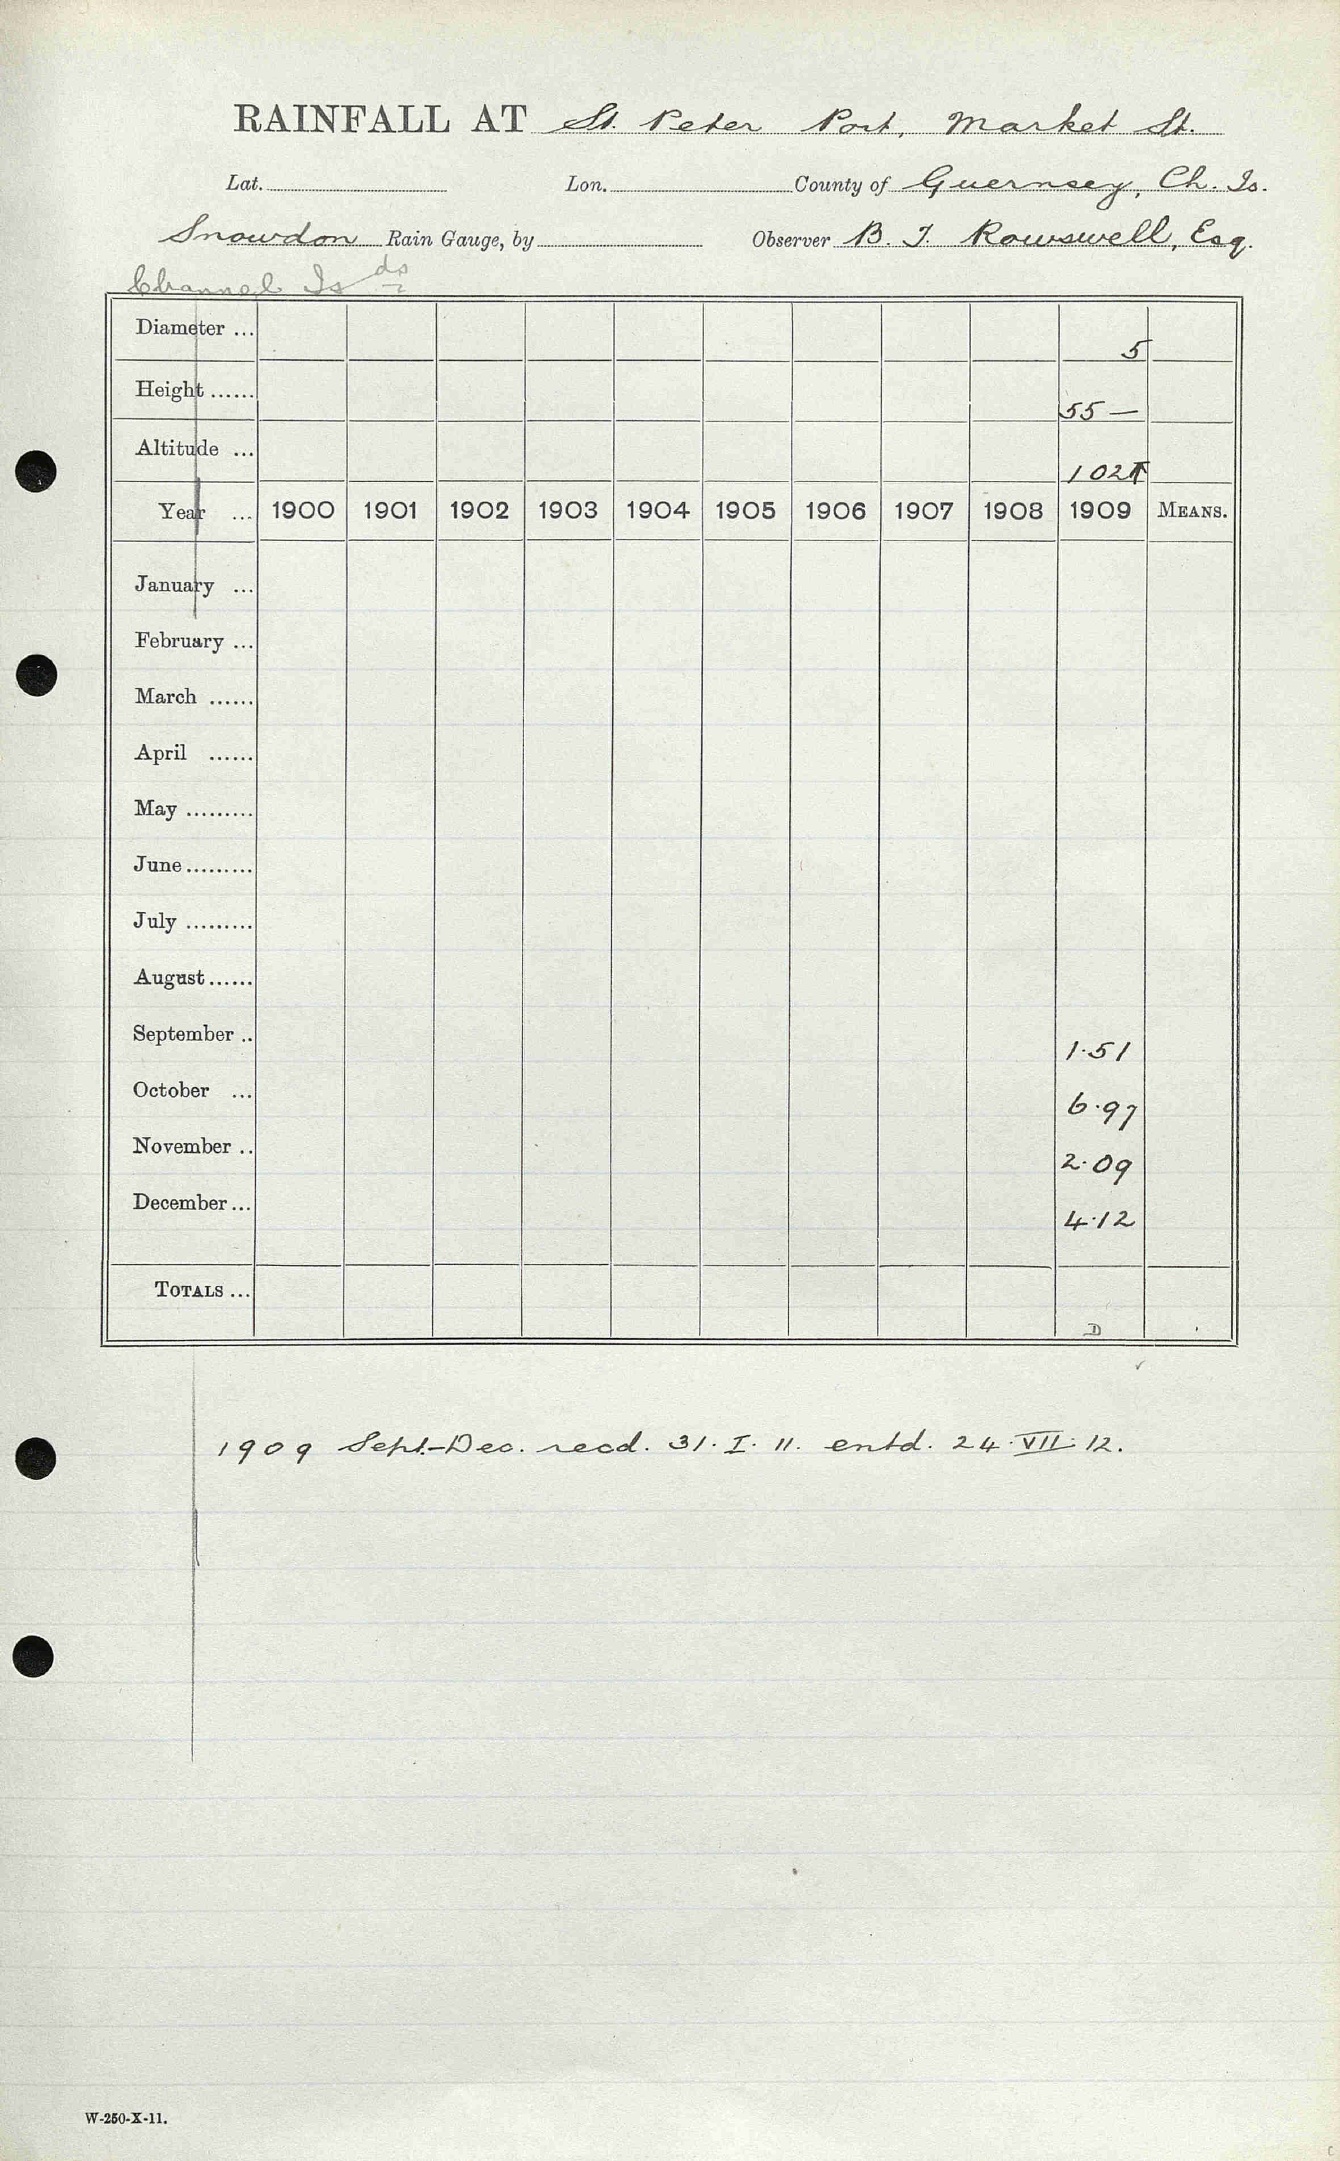 RAINFALL AT St. Peter Port, Market St.
Lat. Lon. County of Guernsey, Ch. Is.
Snowdon Rain Gauge, by Observer B. T. Rowswell, Esq.
Channel Is ds
Diameter ... 5
Height ...... 55 —
Altitude ... 102
Year ... 1900 1901 1902 1903 1904 1905 1906 1907 1908 1909 MEANS.
January ...
February ...
March ......
April ......
May .........
June .........
July .........
August ......
September .. 1.51
October ... 6.97
November .. 2.09
December ... 4.12
TOTALS ...
D
1909 Sept.-Dec. recd. 31. I. 11. entd. 24. VII. 12.
W-250-X-11.